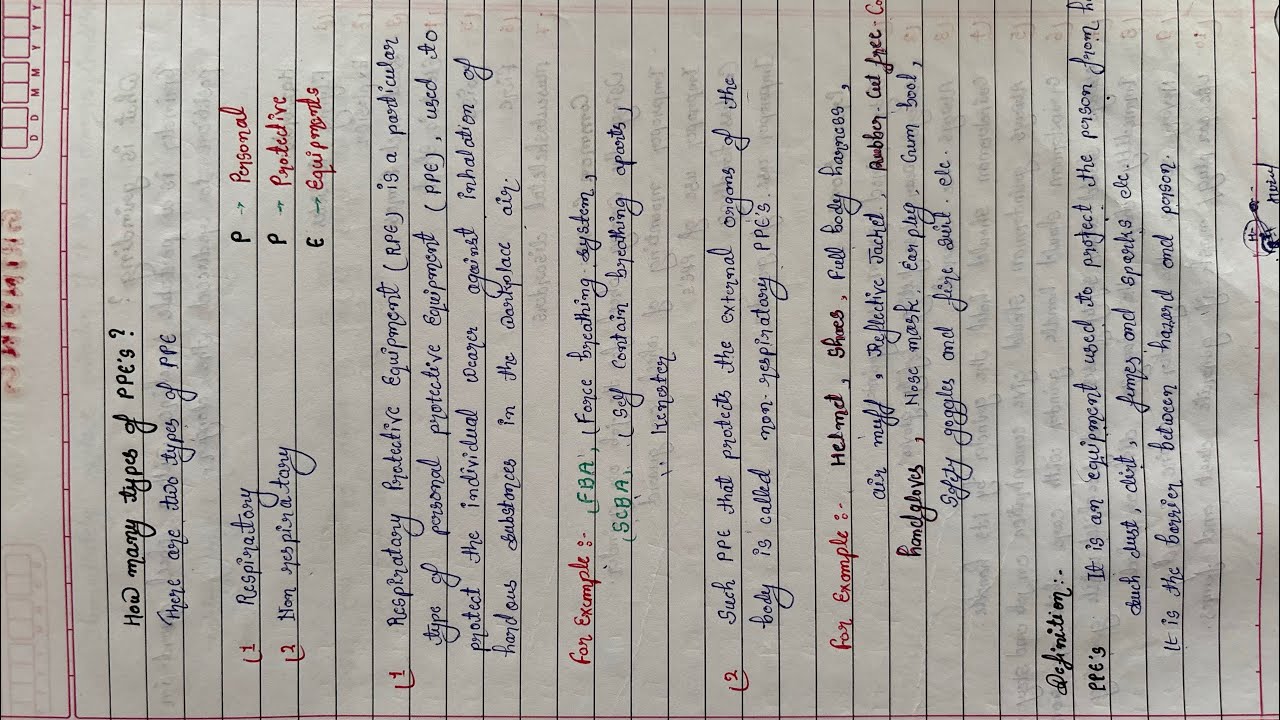 DDMMYY
How many types of PPE's ?
There are two types of PPE
1 Respiraitary
P → Personal
2 Non respiratary
P → Protective
E → Equipments
1 Respiratary Protective Equipment (RPE) is a particular
type of personal protective Equipment (PPE), used to
protect the individual wearer against inhalation of
hardous substances in the workplace air.
For Example :- (FBA, (Force breathing system,
(SCBA. (Self Contain breathing aparts,
" Kenester
2 Such PPE that protects the external organs of the
body is called non-respiratary PPE's.
For Example :- Helmet, Shoes, Full body harness,
air muff, Reflective Jacket, Rubber. Cut free. Co
handgloves, Nose mask, Ear plug, Gum boot,
Sefty goggles and fire suit. etc.
Definition :-
PPE's It is an equipment used to protect the person from h
such dust, dirt, fumes and sparks etc.
It is the barrier between hazard and person.